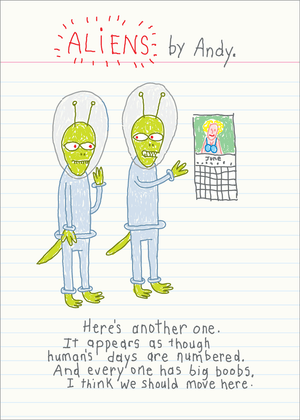 ALiENS by Andy.
June
Here's another one.
It appears as though
human's days are numbered.
And every one has big boobs,
I think we should move here.